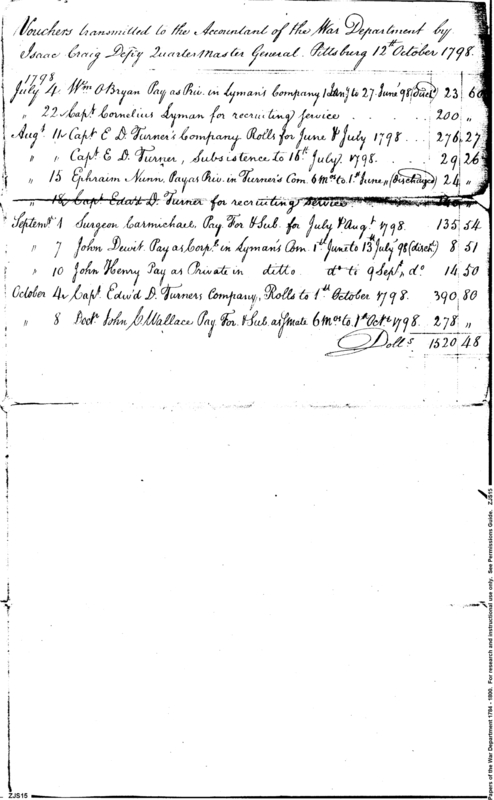 Vouchers transmitted to the Accountant of the War Department by
Isaac Craig Depy Quarter Master General. Pittsburg 12th October 1798.
1798
July 4 Wm O'Bryan Pay as Priv. in Lyman's Company 1 Jany to 27 June 98 (Disch) 23 60
" 22 Capt. Cornelius Lyman for recruiting service 200 "
Augt 11 Capt E D Turner's Company Rolls for June & July 1798 276 27
" " Capt E D Turner, Subsistence to 16th July 1798. 29 26
" 15 Ephraim Nunn Pay as Priv. in Turner's Com. 6 Mos to 1st June " (Discharged) 24 "
" 18 Capt Edwd D. Turner for recruiting service "
Septemr 1 Surgeon Carmichael Pay For & Sub. for July & Augt 1798. 135 54
" 7 John Dewit Pay as Corpl in Lyman's Com. 1st June to 13th July 98 (disch.) 8 51
" 10 John Henry Pay as Private in ditto do to 9 Sepr do 14 50
October 4 Capt. Edw'd D. Turners Company, Rolls to 1st October 1798. 390 80
" 8 Doctr John C Wallace Pay For. & Sub. as Sr Mate 6 Mos to 1st Octr 1798 278 "
Dolls 1520 48
ZJS15
Papers of the War Department 1784 - 1800. For research and instructional use only. See Permissions Guide. ZJS15